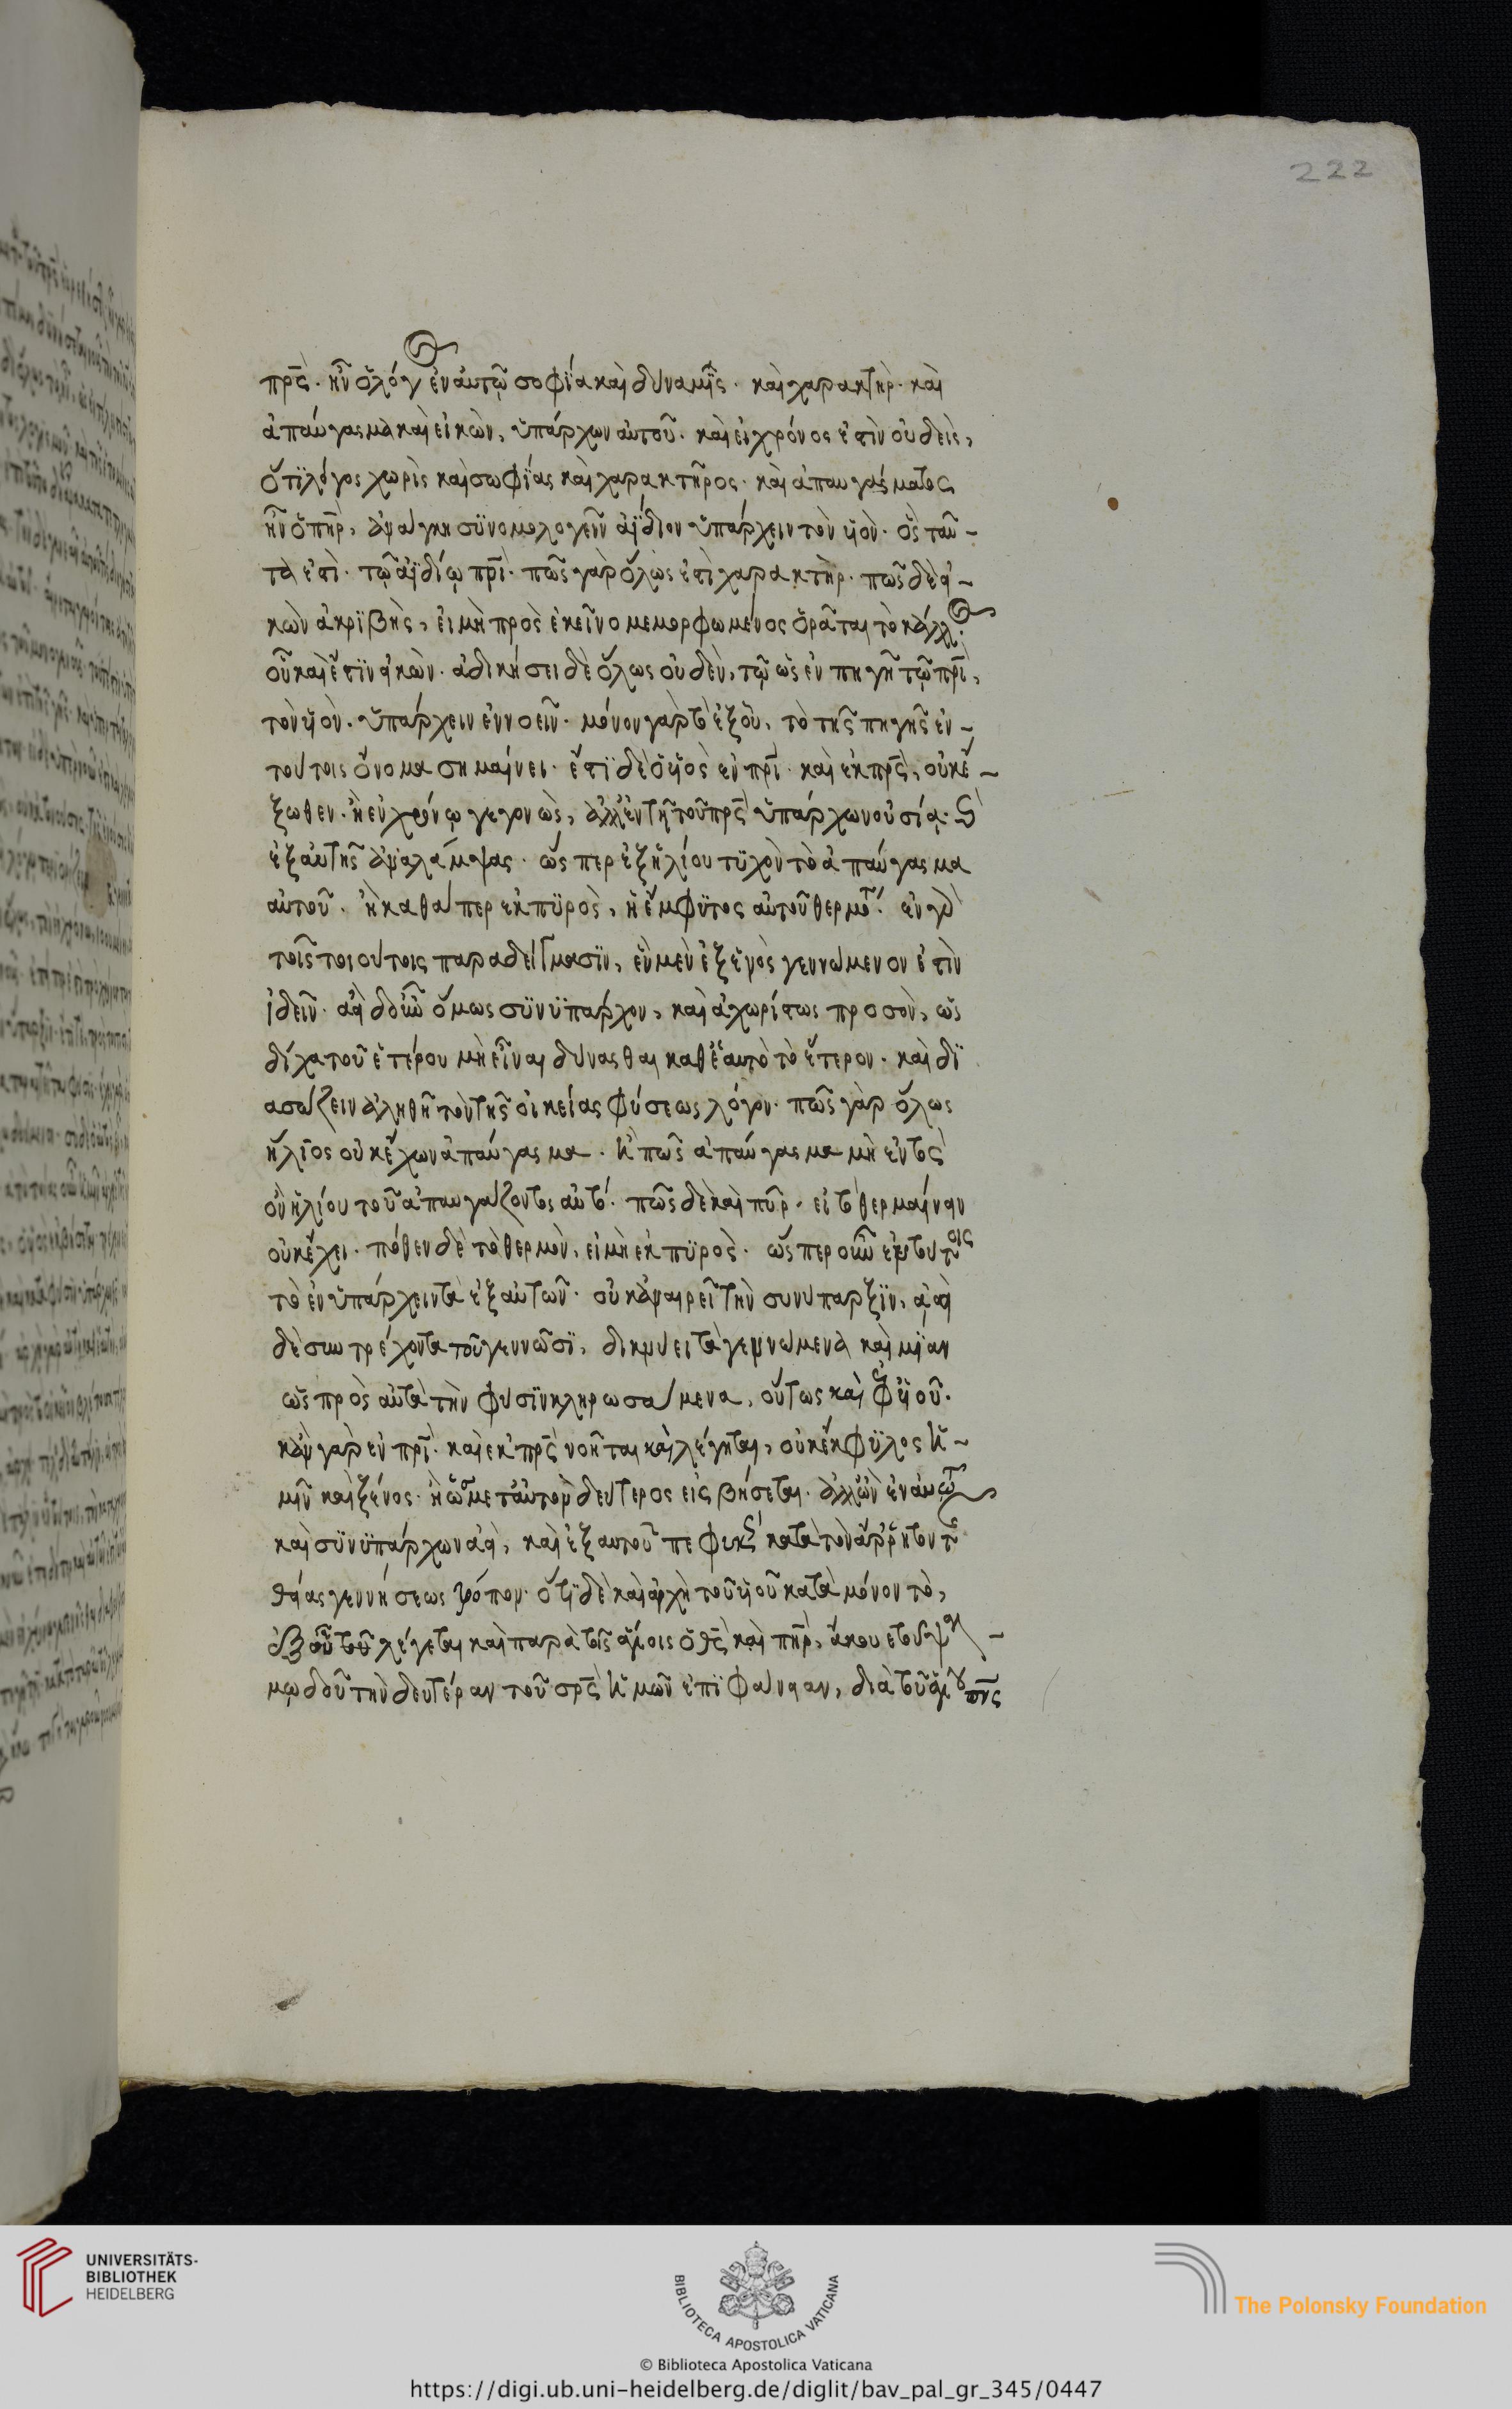 222
πρς. ἦν ὁ λόγ ἐν αὐτῷ σοφία καὶ δύναμϊς. καὶ χαρακτὴρ. καὶ
ἀπαύγασμα καὶ εἰκὼν, ὑπάρχων αὐτοῦ. καὶ εἰ χρόνος ἐστὶν οὐδεὶς,
ὅτϊ λόγος χωρὶς καὶ σωφίας καὶ χαρακτῆρος. καὶ ἀπαυγάσματος
ἦν ὁ πηρ, ἀνάγκη συνομολογεῖν ἀΐδιον ὑπάρχειν τὸν υἱὸν. ὃς ταῦ-
τὰ ἐστὶ. τῷ ἀϊδίῳ πρι. πῶς γὰρ ὅλως ἐστὶ χαρακτὴρ. πῶς δὲ εἰ-
κὼν ἀκριβὴς, εἰ μὴ πρὸς ἐκεῖνο μεμορφωμένος ὁρᾶται τὸ κάλλ
οὗ καὶ ἔστιν εἰκὼν. ἀδικήσει δὲ ὅλως οὐδὲν, τῷ ὡς ἐν πηγῇ τῷ πρι,
τὸν υἱὸν. ὑπάρχειν ἐννοεῖν. μόνον γὰρ τὸ ἐξ οὗ, τὸ τῆς πηγῆς ἐν
τούτοις ὄνομα σημαίνει. ἔστϊ δὲ ὁ υἱὸς ἐν πρι. καὶ ἐκ πρς, οὐκ ἔ-
ξωθεν. ἢ ἐν χρόνῳ γεγονὼς, ἀλλ' ἐν τῇ τοῦ πρς ὑπάρχων οὐσίᾳ.
ἐξ αὐτῆς ἀναλάμψας. ὥς περ ἐξ ἡλίου τϋχὸν τὸ ἀπαύγασμα
αὐτοῦ. ἢ καθάπερ ἐκ πϋρὸς, ἡ ἔμφϋτος αὐτοῦ θερμότ. ἐν γὰρ
τοῖς τοιούτοις παραδείγμασϊν, ἓν μὲν ἐξ ἑνὸς γεννώμενον ἐστὶν
ἰδεῖν. ἀεὶ δ' οὖν ὅμως σϋνϋπάρχον, καὶ ἀχωρίστως προσὸν, ὡς
δίχα τοῦ ἑτέρου μὴ εἶναι δύνασθαι καθ' ἑαυτὸ τὸ ἕτερον. καὶ δϊ
ασώζειν ἀληθῆ τὸν τῆς οἰκείας φύσεως λόγον. πῶς γὰρ ὅλως
ἥλϊος οὐκ ἔχων ἀπαύγασμα. ἢ πῶς ἀπαύγασμα μὴ ἐντὸς
ὂν ἡλίου τοῦ ἀπαυγάζοντος αὐτό. πῶς δὲ καὶ πῦρ. εἰ τὸ θερμαίνειν
οὐκ ἔχει. πόθεν δὲ τὸ θερμὸν, εἰ μὴ ἐκ πϋρὸς. ὥς περ οὖν ἐν τούτοις
τὸ ἐνϋπάρχειν τὰ ἐξ αὐτῶν. οὐκ ἀναιρεῖ τὴν συνύπαρξϊν, ἀεὶ
δὲ συντρέχοντα τοῖς γεννῶσϊ, δεικνύει τὰ γεννώμενα καὶ μίαν
ὡς πρὸς αὐτὰ τὴν φύσϊν κληρωσάμενα, οὕτως καὶ ἐφ' υἱοῦ.
κἂν γὰρ ἐν πρι. καὶ ἐκ πρς νοῆται καὶ λέγηται, οὐκ ἔκφϋλος ἡ-
μῖν καὶ ξένος. ἢ ὢν μετ' αὐτὸν δεύτερος εἰς βήσεται. ἀλλ' ὢν ἐν αὐτῷ
καὶ σϋνϋπάρχων ἀεὶ, καὶ ἐξ αὐτοῦ πεφυκ κατὰ τὸν ἄρρητον τ
θείας γεννήσεως τρόπον. ὅτϊ δὲ καὶ ἀρχὴ τοῦ υἱοῦ κατὰ μόνον τὸ,
ἐξ οὗ λέγεται καὶ παρὰ τοῖς ἁγίοις ὁ θς καὶ πηρ, ἄκουε τοῦ ψαλ-
μῳδοῦ τὴν δευτέραν τοῦ σρς ἡμῶν ἐπϊφάνειαν, διὰ τοῦ ἁγίου πνς
UNIVERSITÄTS-
BIBLIOTHEK
HEIDELBERG
BIBLIOTECA APOSTOLICA VATICANA
The Polonsky Foundation
© Biblioteca Apostolica Vaticana
https://digi.ub.uni-heidelberg.de/diglit/bav_pal_gr_345/0447